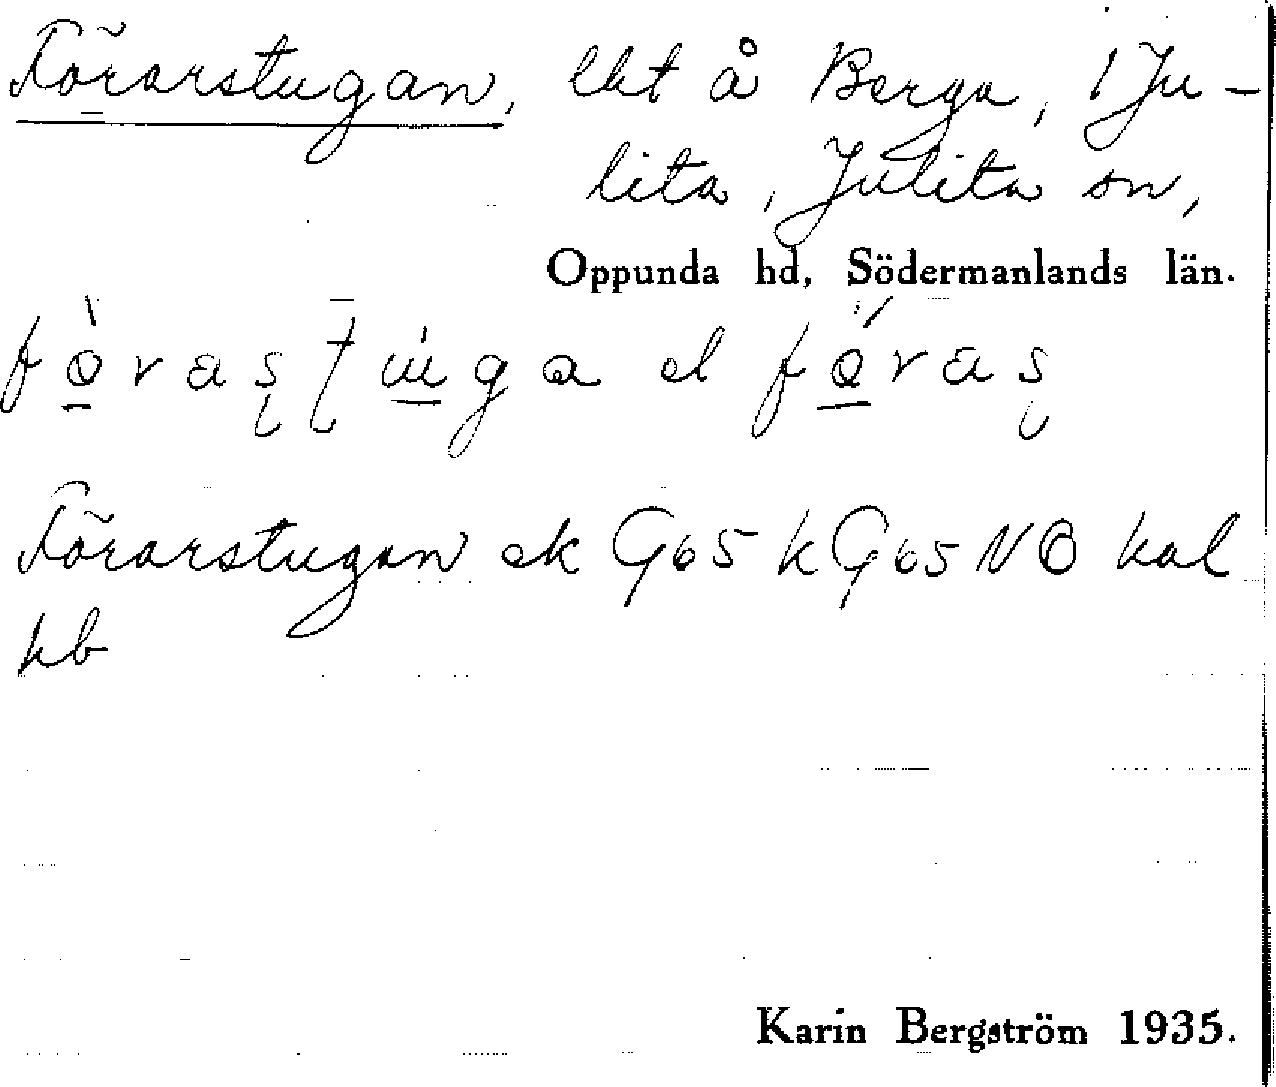 Förarstugan, lht å Berga, 1 Ju-
lita, Julita sn,
Oppunda hd, Södermanlands län.
el
Förarstugan ek G65 k G65 NO kal
hb
Karin Bergström 1935.